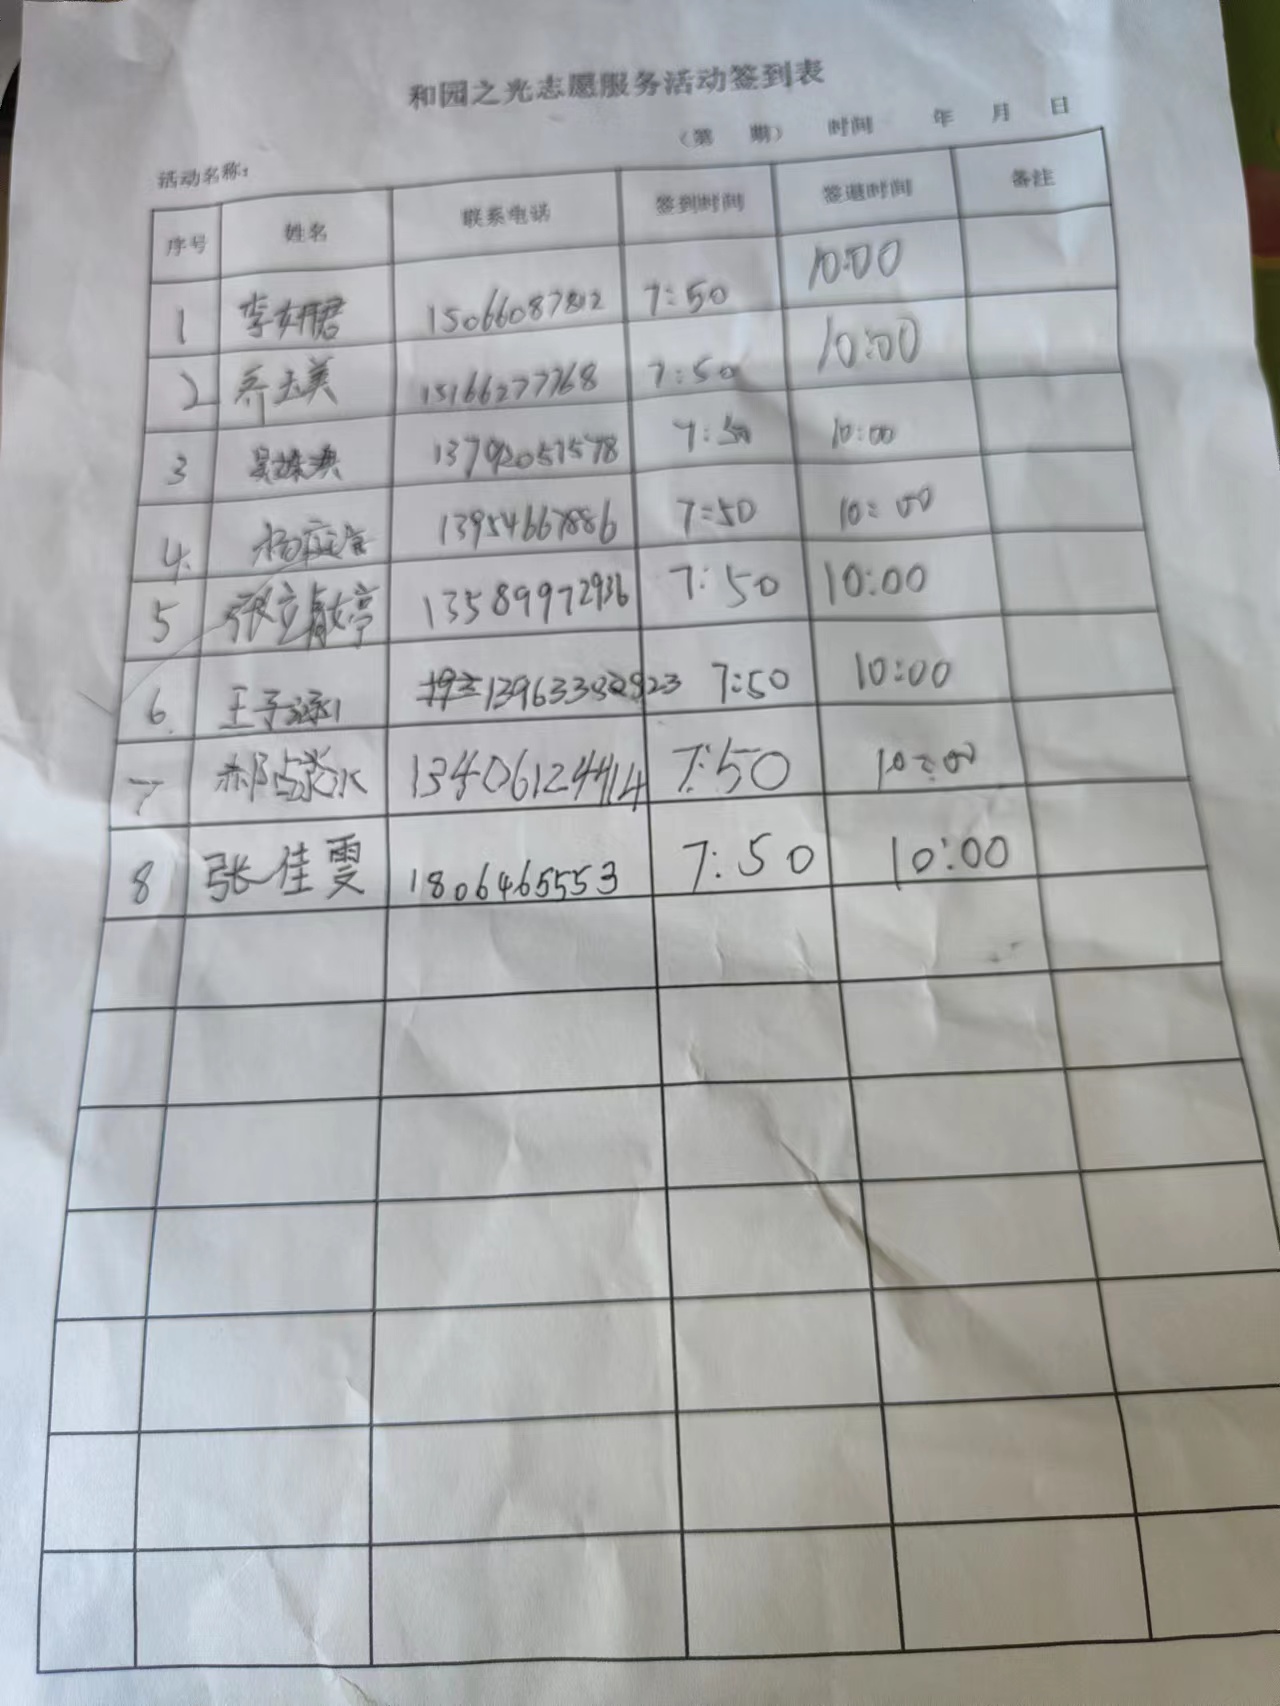 和园之光志愿服务活动签到表
（第 期） 时间 年 月 日
活动名称：
序号 姓名 联系电话 签到时间 签退时间 备注
1 李妍君 15066087812 7:50 10:00
2 乔玉美 15166277768 7:50 10:00
3 13792057578 7:50 10:00
4. 13954667886 7:50 10:00
5 13589972936 7:50 10:00
6. 王子涵 7:50 10:00
7 13406124414 7:50 10:00
8 张佳雯 1806465553 7:50 10:00